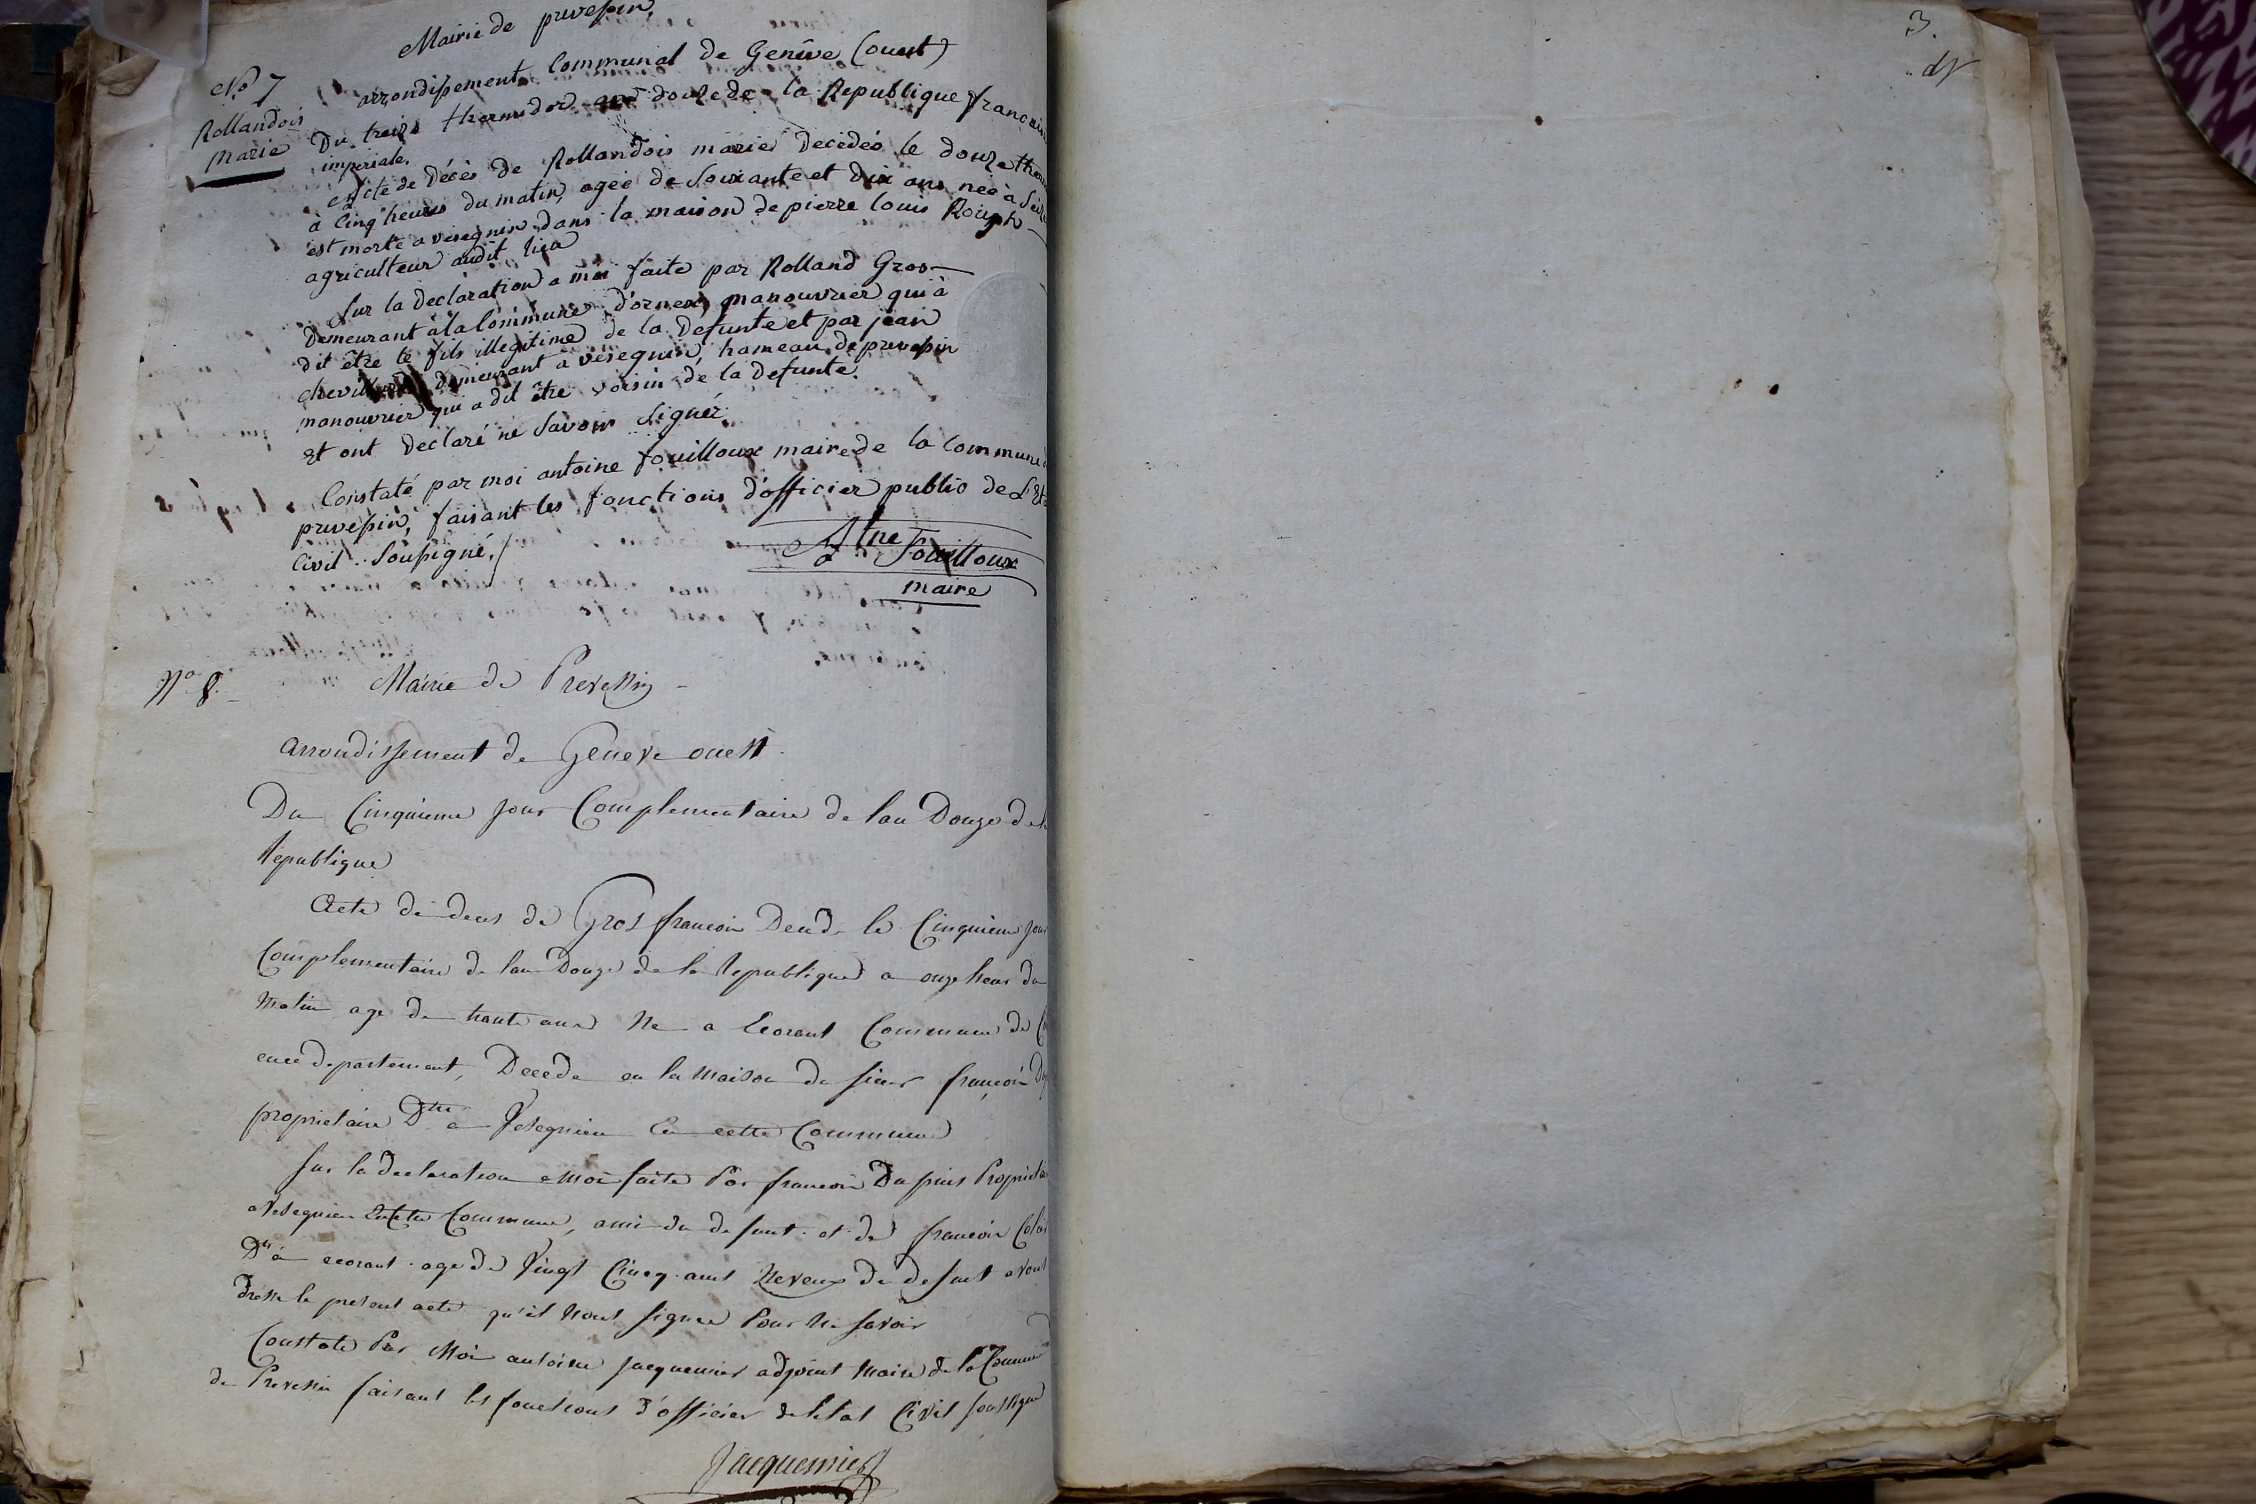 Mairie de prevessin.
arrondissement Communal de Genève (ouest)
No 7
Rollandois
Marie
Du treize thermidor an douze de la Republique francaise
imperiale.
acte de Décès de Rollandois marie décedéé le douze
à Cinq heures du matin, ageé de Soixante et dix ans neé à
est morte a vésegnin dans la maison de pierre louis Rouph
agriculteur audit lieu
Sur la declaration a moi faite par Rolland Gros
demeurant à la Commune d'ornex, manouvrier qui à
dit être le fils illegitime de la defunte et par jean
demeurant à vésegnin, hameau de prevessin
manouvrier qui a dit être voisin de la defunte.
Et ont declaré ne Savoir Signér.
Constaté par moi antoine fouilloux maire de la Commune
prevessin, faisant les fonctions d'officier public de L'Et
Civil Soussigné.
Atne Fouilloux
maire
No 8
Mairie de Prevessin
arrondissement de Geneve ouest
Du Cinquieme jour Complementaire de lan Douze de la
Republique
Acte de deces de Gros francois Deced. le Cinquieme jour
Complementaire de lan Douze de la Republique a onze heur du
matin age de trante ans Ne a Ecorant Commune de
en ce departement, Decede en la maison du sieur francois
proprietaire Dtt a Vesegnin en cette Commune
sur la declaration a moi faite Par francois Dupuis Proprietai
a Vesegnin Commune, ami du defunt et de francois
Dtt à ecorant age de Vingt Cincq ans Neveux du defunt avons
dresse le present acte qu'il nont signee Pour ne savoir
Constate Par Moi antoine jacquemier adjoint maire de la Commune
de Prevessin faisant les fonctions d'officier de letat Civil soussigne
Jacquemier
3.